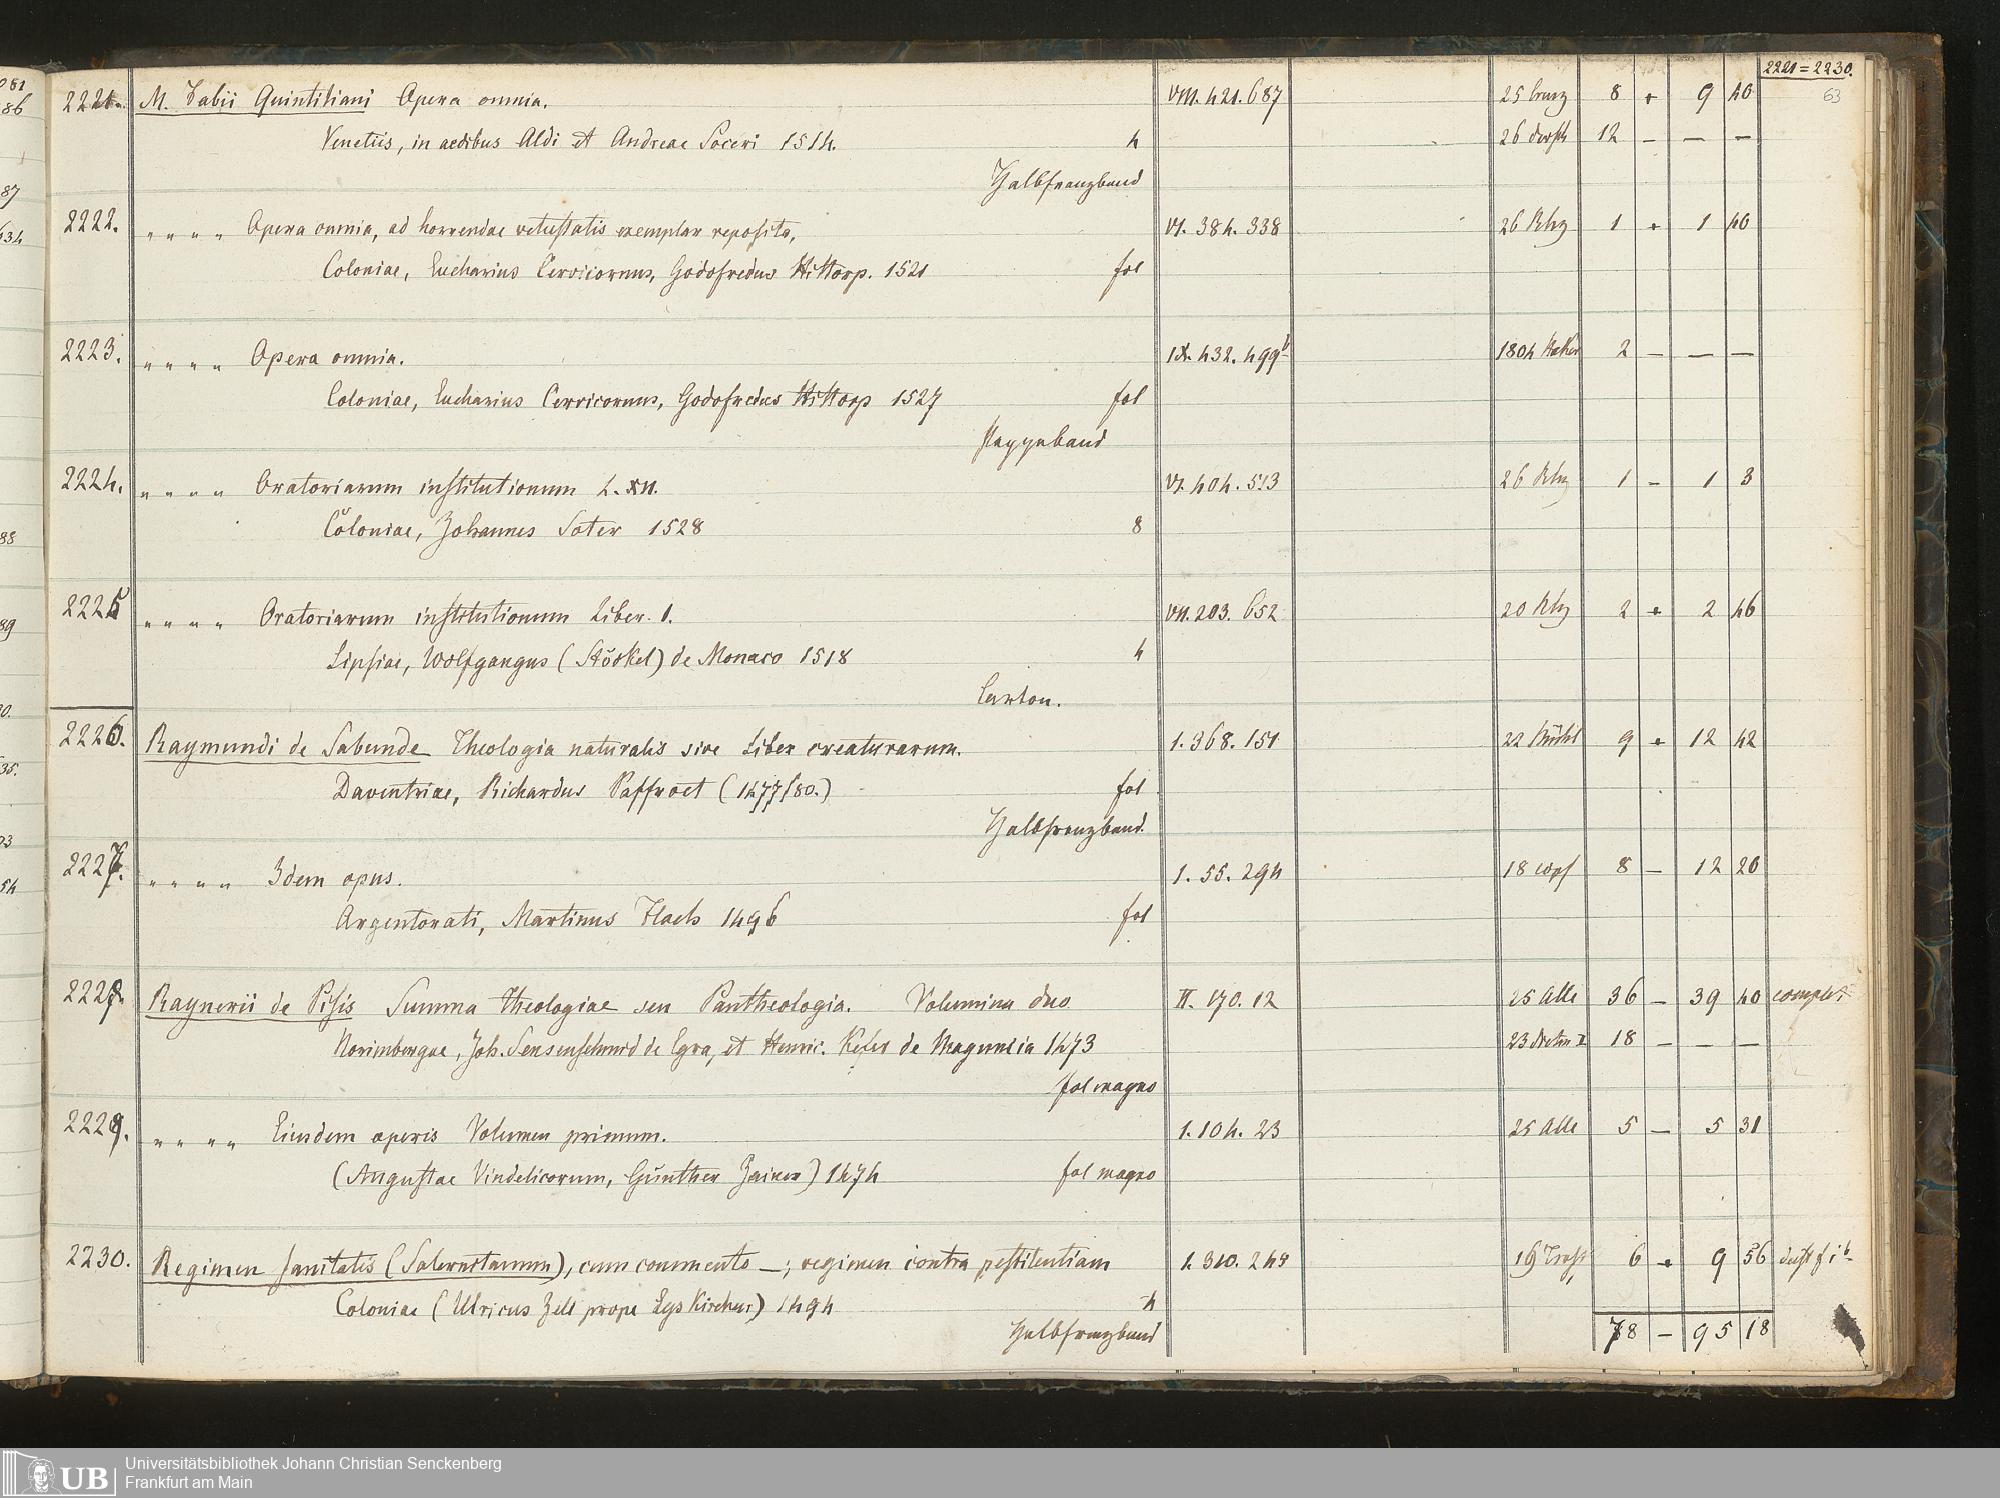 2221=2230.
63
2221. M. Fabii Quintiliani Opera omnia. VIII. 421. 687 25 8 + 9 40
Venetiis, in aedibus Aldi et Andreae Soceri 1514. 4 26 12 — — —
Halbfranzband
2222. " " " " Opera omnia, ad horrendae vetustatis exemplar reposita, VI. 384. 338 26 1 + 1 40
Coloniae, Eucharius Cervicornus, Godofredus Hittorp. 1521 fol
2223. " " " " Opera omnia. IX. 432. 499b 1804 2 — — —
Coloniae, Eucharius Cervicornus, Godofredus Hittorp 1527 fol
Pappband
2224. " " " " Oratoriarum institutionum L. XII. VI. 404. 513 26 1 — 1 3
Coloniae, Johannes Soter 1528 8
2225 " " " " Oratoriarum institutionum Liber. I. VII. 203. 652 20 2 + 2 46
Lipsiae, Wolfgangus (Stöckel) de Monaco 1518 4
Carton.
2226. Raymundi de Sabunde Theologia naturalis sive Liber creaturarum. I. 368. 151 22 9 + 12 42
Daventriae, Richardus Paffroet (1477/80.) fol
Halbfranzband.
2227. " " " " Idem opus. I. 55. 294 18 8 — 12 20
Argentorati, Martinus Flach 1496 fol
2228. Raynerii de Pisis Summa theologiae seu Pantheologia. Volumina duo II. 170. 12 25 Alle 36 — 39 40 complet
Norimbergae, Joh. Sensenschmid de Egra, et Henric. Kefer de Maguncia 1473 23 18 — — —
fol magno
2229. " " " " Eiusdem operis Volumen primum. I. 104. 23 25 Alle 5 — 5 31
(Augustae Vindelicorum, Günther Zainer) 1474 fol magno
2230. Regimen sanitatis (Salernitanum), cum commento —; regimen contra pestilentiam I. 310. 244 19 6 + 9 56
Coloniae (Ulricus Zell prope Lyskirchen) 1494 4
Halbfranzband
78 — 95 18
UB
Universitätsbibliothek Johann Christian Senckenberg
Frankfurt am Main